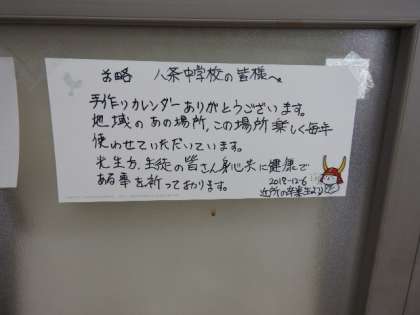 前略 八条中学校の皆様へ
手作りカレンダーありがとうございます。
地域のあの場所,この場所楽しく毎年
使わせていただいています。
先生方、生徒の皆さん身心共に健康で
ある事を祈っております。
2018-12-6
近所の卒業生より